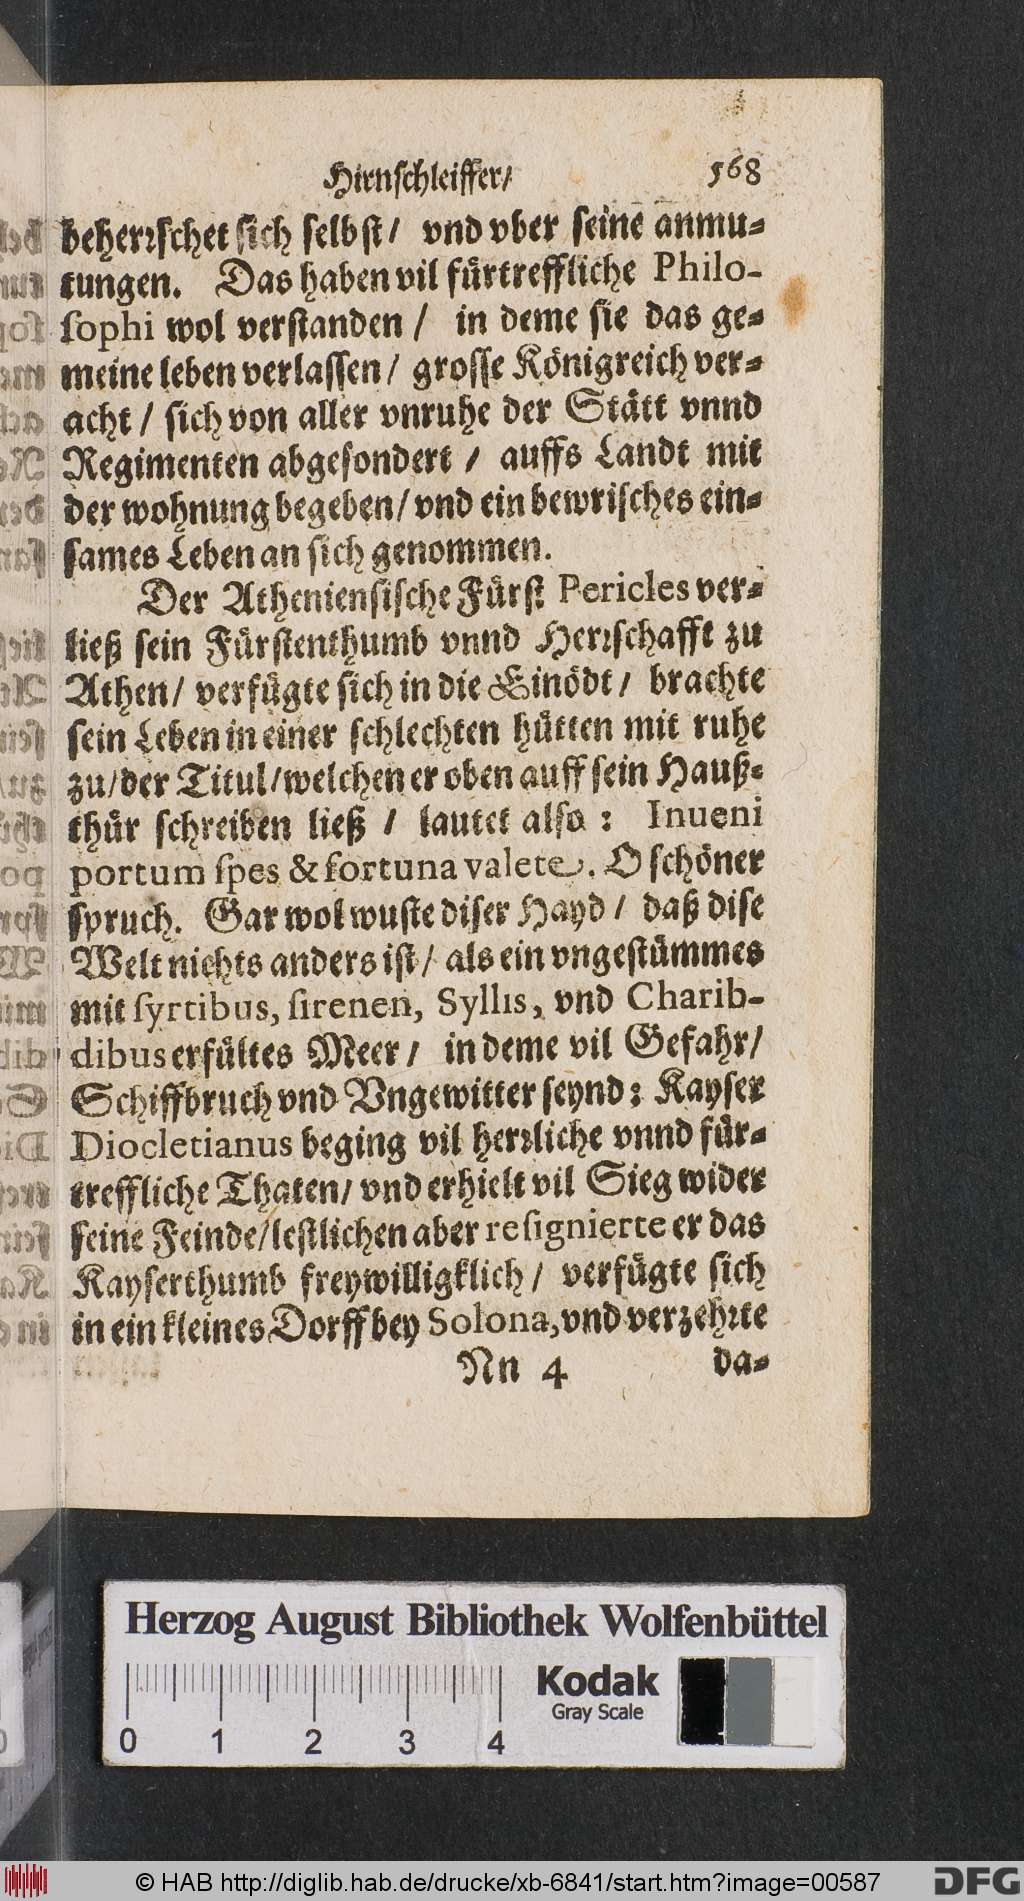 Hirnschleiffer/ 568
beherꝛſchet ſich ſelbſt/ vnd vber ſeine anmu⸗
tungen. Das haben vil fuͤrtreffliche Philo-
ſophi wol verſtanden / in deme ſie das ge⸗
meine leben verlaſſen/ groſſe Koͤnigreich ver⸗
acht / ſich von aller vnruhe der Staͤtt vnnd
Regimenten abgeſondert / auffs Landt mit
der wohnung begeben/ vnd ein bewriſches ein⸗
ſames Leben an ſich genommen.
Der Athenienſiſche Fuͤrſt Pericles ver⸗
ließ ſein Fuͤrſtenthumb vnnd Herꝛſchafft zu
Athen/ verfuͤgte ſich in die Einoͤdt/ brachte
ſein Leben in einer ſchlechten huͤtten mit ruhe
zu/ der Titul/ welchen er oben auff ſein Hauß⸗
thuͤr ſchreiben ließ / lautet alſo: Inueni
portum ſpes & fortuna valete. O ſchoͤner
ſpruch. Gar wol wuſte diſer Hayd/ daß diſe
Welt nichts anders iſt/ als ein vngeſtuͤmmes
mit ſyrtibus, ſirenen, Syllis, vnd Charib-
dibus erfuͤltes Meer/ in deme vil Gefahr/
Schiffbruch vnd Vngewitter ſeynd: Kayſer
Diocletianus beging vil herꝛliche vnnd fuͤr⸗
treffliche Thaten/ vnd erhielt vil Sieg wider
ſeine Feinde/ leſtlichen aber reſignierte er das
Kayſerthumb freywilligklich/ verfuͤgte ſich
in ein kleines Dorff bey Solona, vnd verzehꝛte
Nn 4 da⸗
Herzog August Bibliothek Wolfenbüttel
Kodak
Gray Scale
0 1 2 3 4
© HAB http://diglib.hab.de/drucke/xb-6841/start.htm?image=00587
DFG